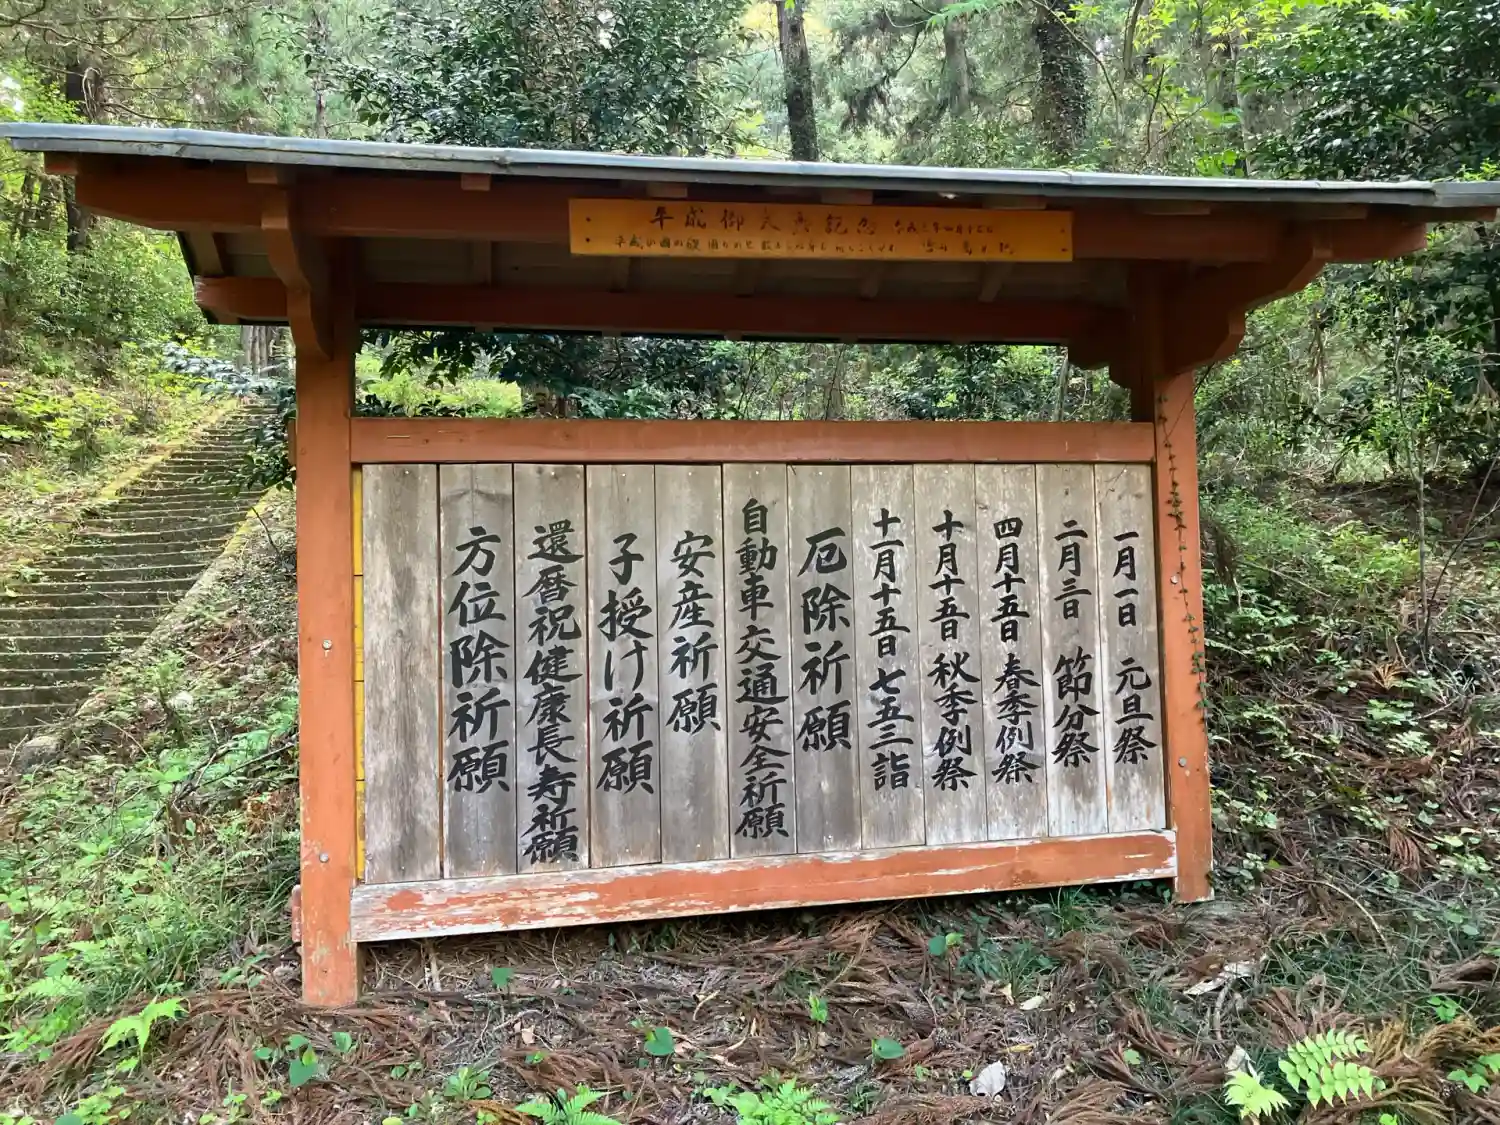 平成御大典記念
一月一日 元旦祭
二月三日 節分祭
四月十五日 春季例祭
十月十五日 秋季例祭
十一月十五日 七五三詣
厄除祈願
自動車交通安全祈願
安産祈願
子授け祈願
還暦祝健康長寿祈願
方位除祈願